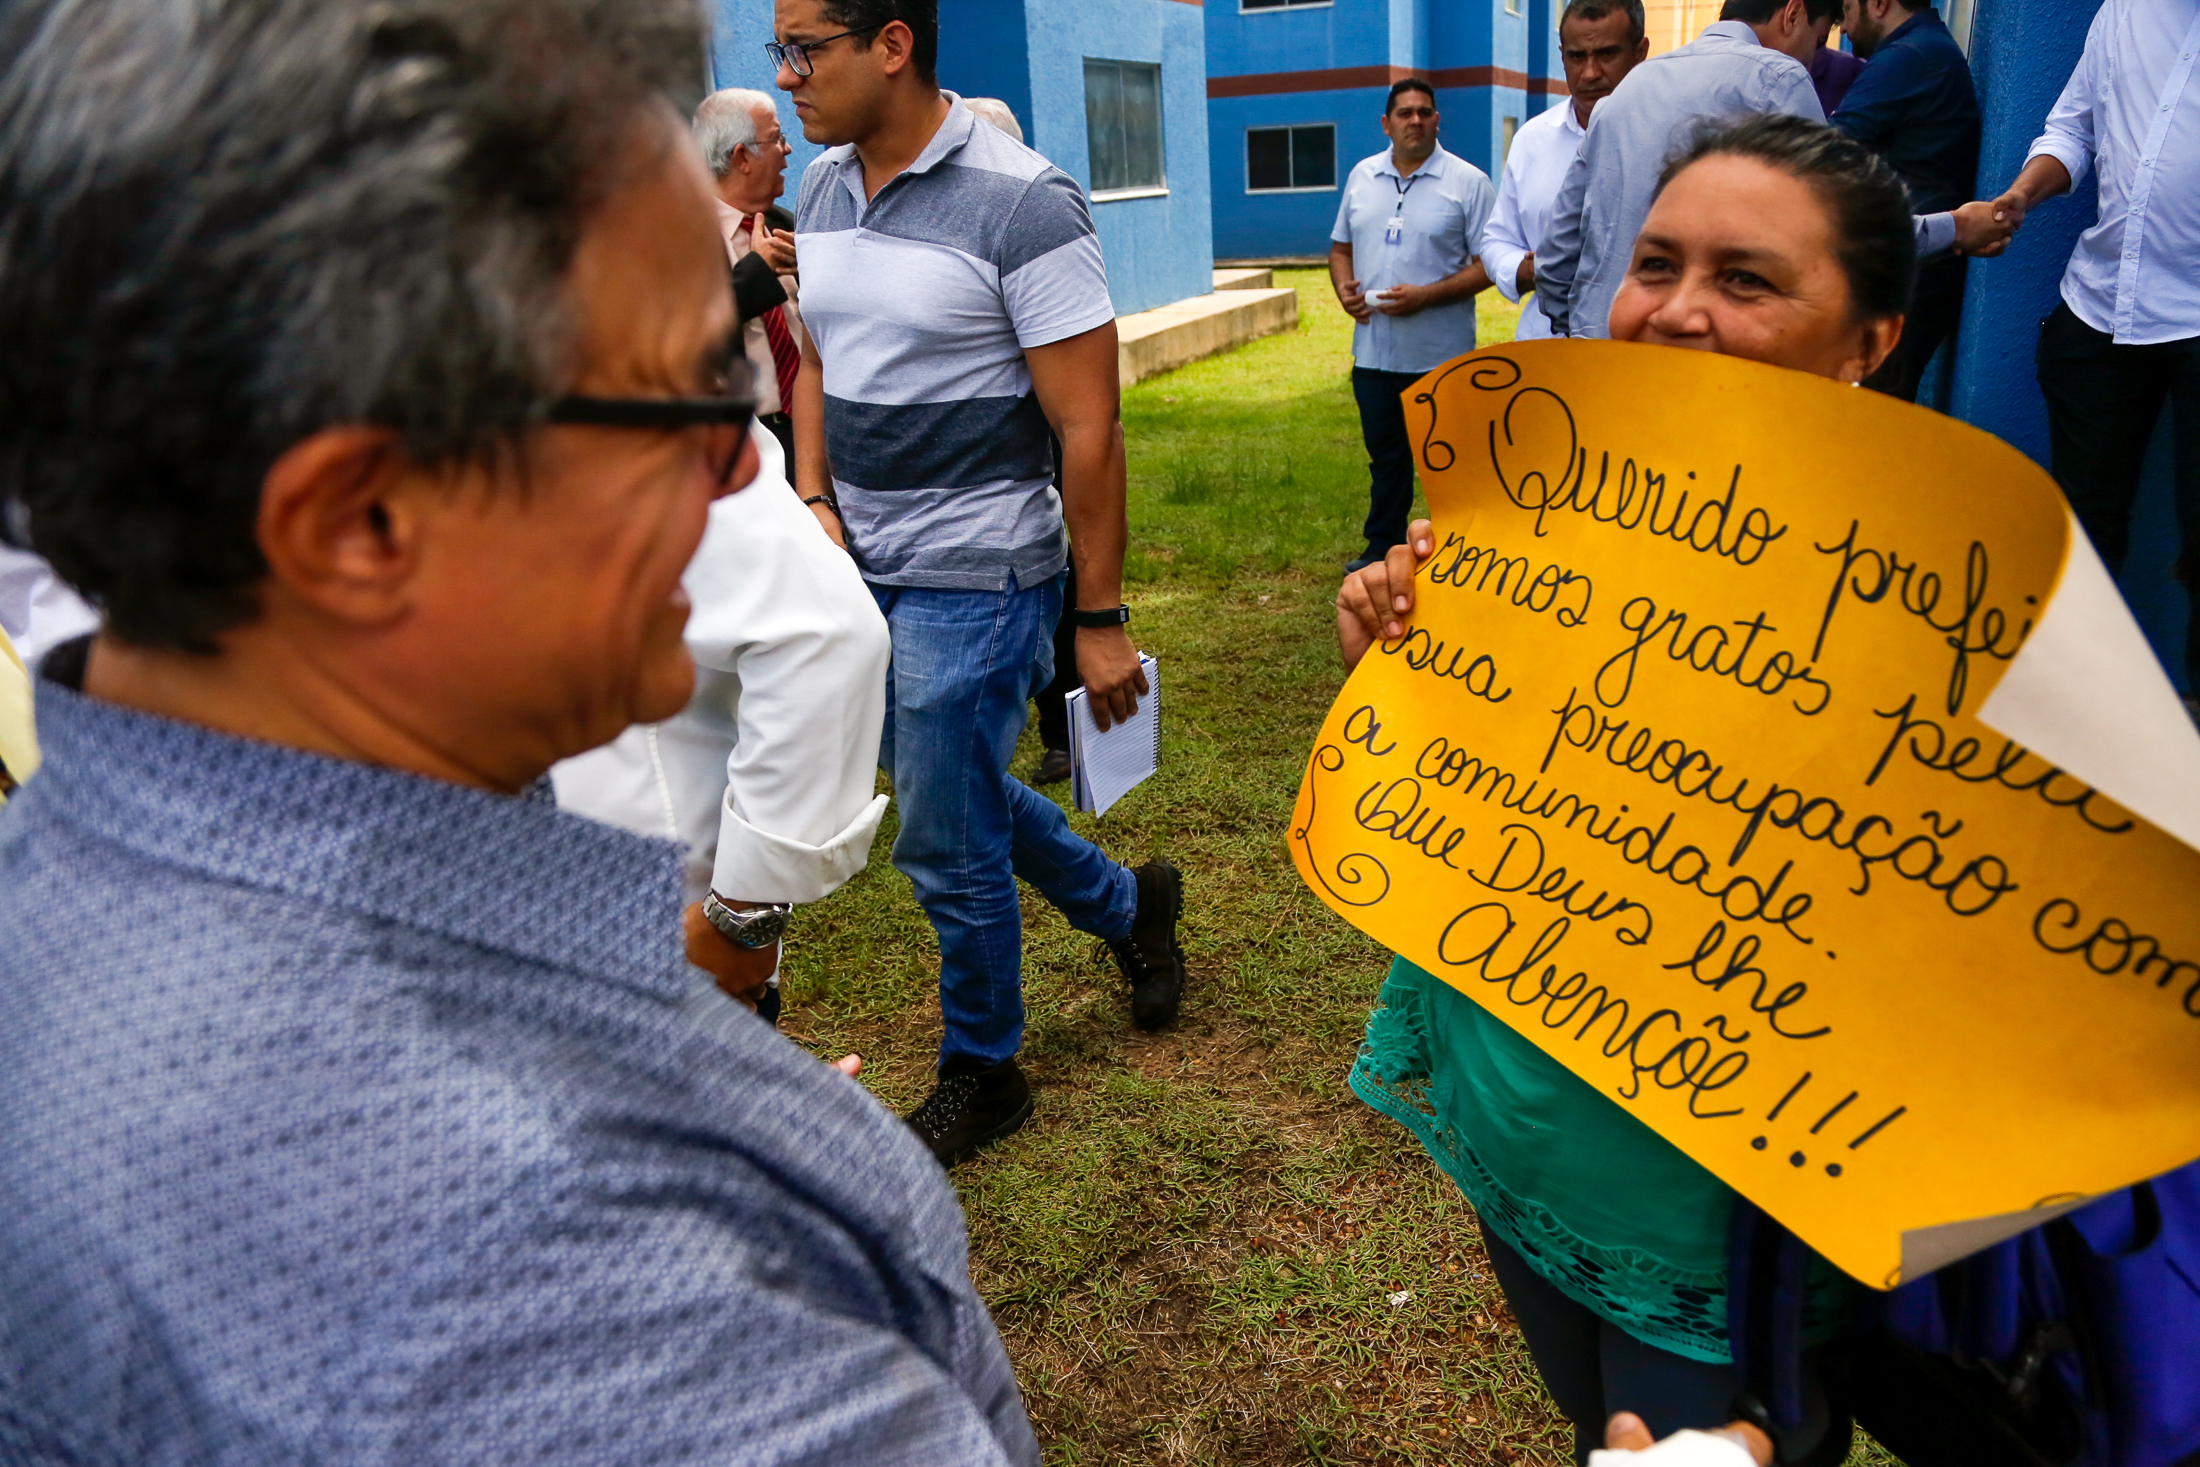 Querido prefei
somos gratos pela
sua preocupação com
a comunidade.
Que Deus lhe
Abençõe!!!